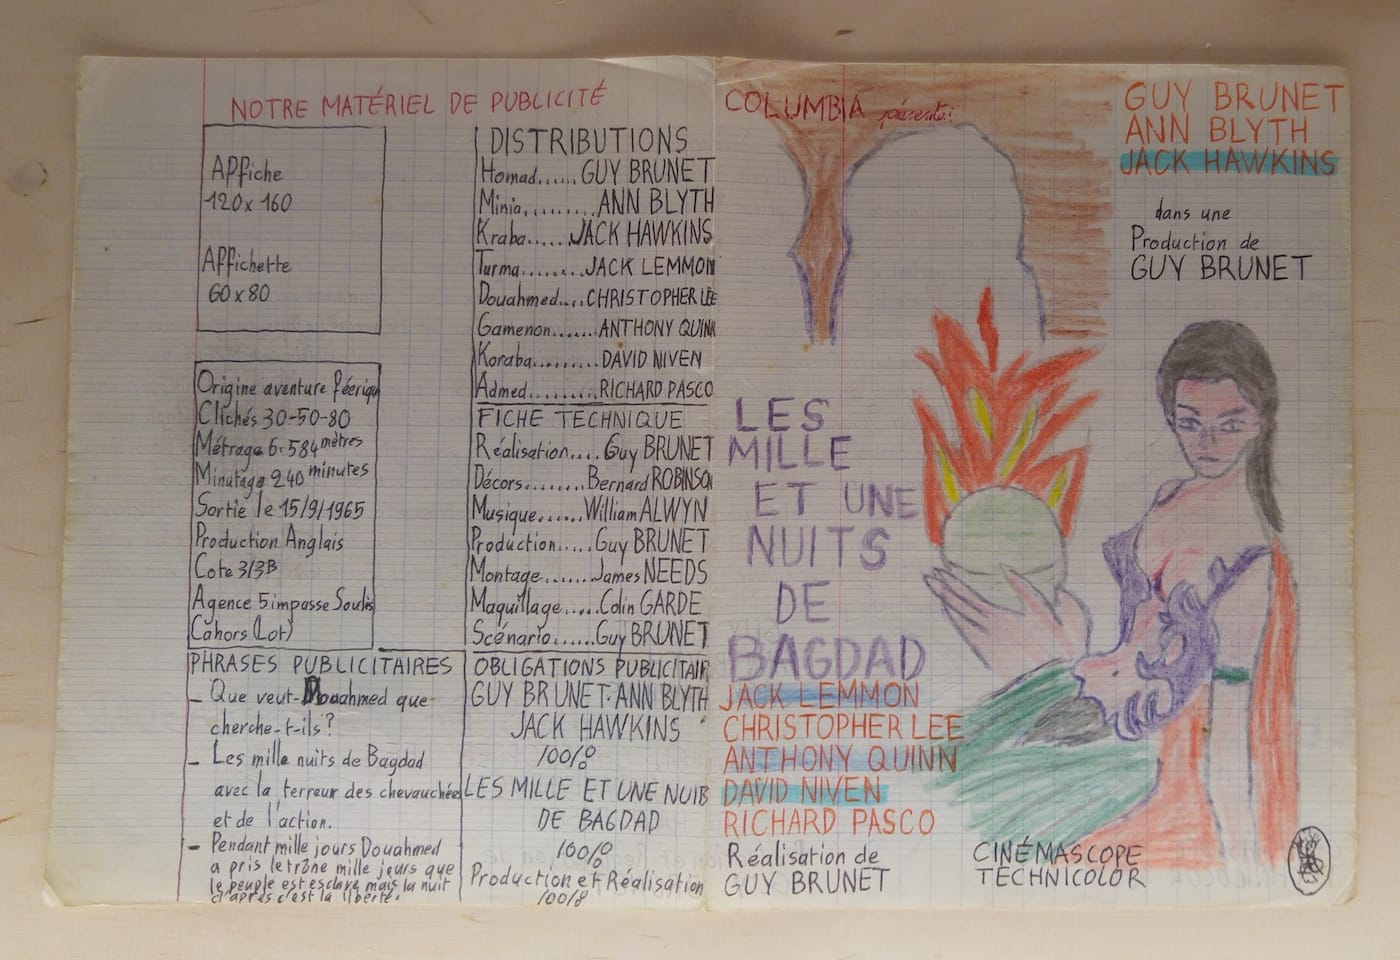 NOTRE MATÉRIEL DE PUBLICITÉ
Affiche
120 x 160
Affichette
60 x 80
Origine aventure féeriqu
Clichés 30-50-80
Métrage 6.584 mètres
Minutage 240 minutes
Sortie le 15/9/1965
Production Anglais
Cote 3/3B
Agence 5 impasse Soulié
Cahors (Lot)
PHRASES PUBLICITAIRES
- Que veut-Douahmed que
cherche-t-ils?
- Les mille nuits de Bagdad
avec la terreur des chevauchées
et de l'action.
- Pendant mille jours Douahmed
a pris le trône mille jours que
le peuple est esclave mais la nuit
d'après c'est la liberté.
DISTRIBUTIONS
Homad...... GUY BRUNET
Minia......... ANN BLYTH
Kraba...... JACK HAWKINS
Turma........ JACK LEMMON
Douahmed.... CHRISTOPHER LEE
Gamenon....... ANTHONY QUINN
Koraba......... DAVID NIVEN
Admed.......... RICHARD PASCO
FICHE TECHNIQUE
Réalisation.... Guy BRUNET
Décors........ Bernard ROBINSON
Musique...... William ALWYN
Production..... Guy BRUNET
Montage....... James NEEDS
Maquillage..... Colin GARDE
Scénario...... Guy BRUNET
OBLIGATIONS PUBLICITAIR
GUY BRUNET-ANN BLYTH
JACK HAWKINS
100%
LES MILLE ET UNE NUIS
DE BAGDAD
100%
Production et Réalisation
100%
COLUMBIA présente:
GUY BRUNET
ANN BLYTH
JACK HAWKINS
dans une
Production de
GUY BRUNET
LES
MILLE
ET UNE
NUITS
DE
BAGDAD
JACK LEMMON
CHRISTOPHER LEE
ANTHONY QUINN
DAVID NIVEN
RICHARD PASCO
Réalisation de
GUY BRUNET
CINÉMASCOPE
TECHNICOLOR